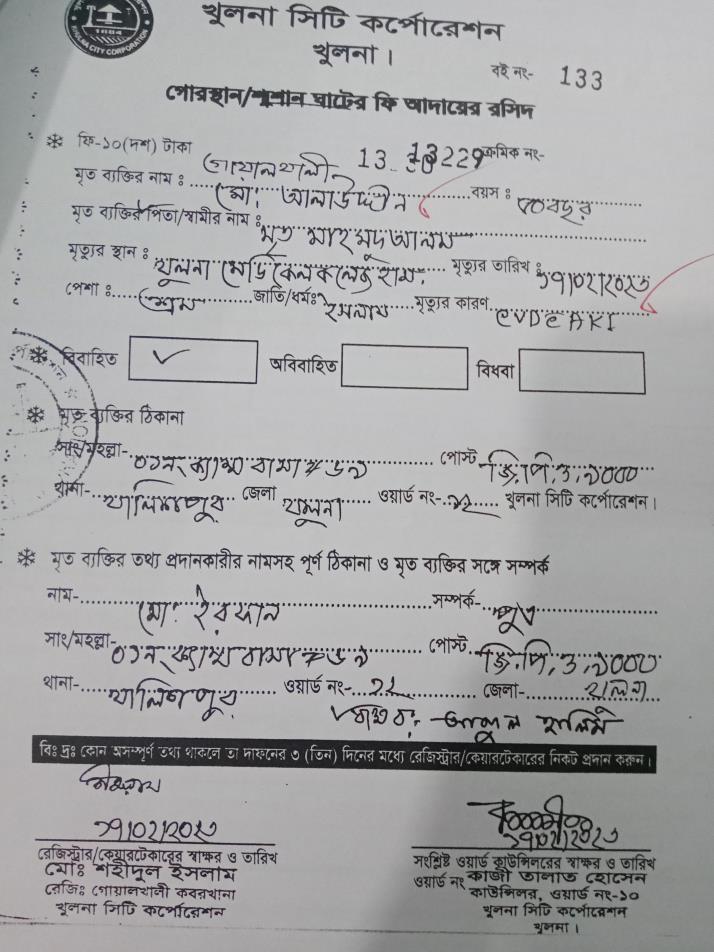 KHULNA CITY CORPORATION
1884
খুলনা সিটি কর্পোরেশন
খুলনা।
বই নং- 133
গোরস্থান/শ্মশান ঘাটের ফি আদায়ের রসিদ
❇ ফি-১০(দশ) টাকা গোয়ালখালী 13 13229 ক্রমিক নং-
মৃত ব্যক্তির নাম : মো: আলাউদ্দীন বয়স : ৫০বছর
মৃত ব্যক্তির পিতা/স্বামীর নাম : মৃত মাহমুদ আলম
মৃত্যুর স্থান : খুলনা মেডিকেল কলেজ হাস. মৃত্যুর তারিখ :
পেশা : শ্রম জাতি/ধর্মঃ ইসলাম মৃত্যুর কারণ CVD C AKI
❇ বিবাহিত ✓ অবিবাহিত বিধবা
❇ মৃত ব্যক্তির ঠিকানা
সাং/মহল্লা- পোস্ট জি,পি,ও,৯০০০
থানা- খালিশপুর জেলা খুলনা ওয়ার্ড নং- ১২ খুলনা সিটি কর্পোরেশন।
❇ মৃত ব্যক্তির তথ্য প্রদানকারীর নামসহ পূর্ণ ঠিকানা ও মৃত ব্যক্তির সঙ্গে সম্পর্ক
নাম- মো: ইরফান সম্পর্ক- পুত্র
সাং/মহল্লা- পোস্ট জি,পি,ও,৯০০০
থানা- খালিশপুর ওয়ার্ড নং- ১২ জেলা- খুলনা
হালিম
বিঃ দ্রঃ কোন অসম্পূর্ণ তথ্য থাকলে তা দাফনের ৩ (তিন) দিনের মধ্যে রেজিস্ট্রার/কেয়ারটেকারের নিকট প্রদান করুন।
রেজিস্ট্রার/কেয়ারটেকারের স্বাক্ষর ও তারিখ
মোঃ শহীদুল ইসলাম
রেজিঃ গোয়ালখালী কবরখানা
খুলনা সিটি কর্পোরেশন
সংশ্লিষ্ট ওয়ার্ড কাউন্সিলরের স্বাক্ষর ও তারিখ
ওয়ার্ড নং কাজী তালাত হোসেন
কাউন্সিলর, ওয়ার্ড নং-১০
খুলনা সিটি কর্পোরেশন
খুলনা।